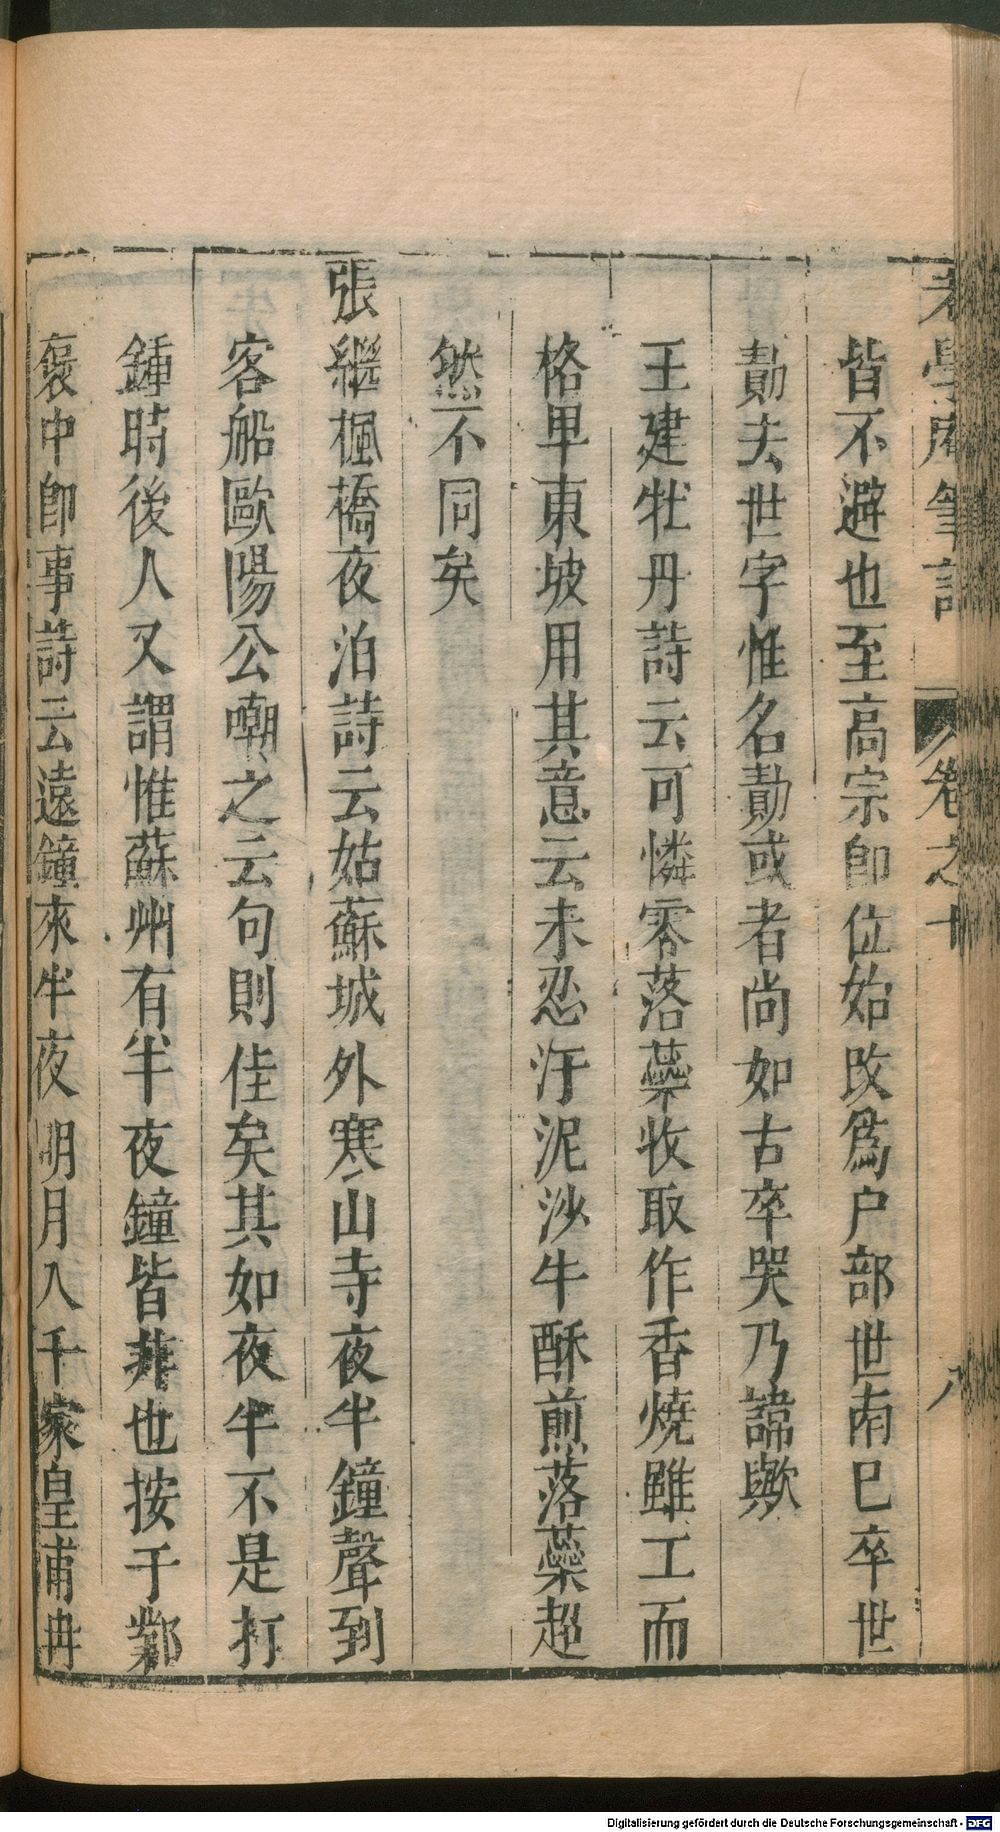 老學庵筆記 卷之十 八
皆不避也至高宗卽位始改爲户部世南已卒世
勣去世字惟名勣或者尚如古卒哭乃諱歟
王建牡丹詩云可憐零落蘂收取作香燒雖工而
格卑東坡用其意云未忍汙泥沙牛酥煎落蘂超
然不同矣
張繼楓橋夜泊詩云姑蘇城外寒山寺夜半鐘聲到
客船歐陽公嘲之云句則佳矣其如夜半不是打
鍾時後人又謂惟蘇州有半夜鐘皆非也按于鄴
褒中卽事詩云遠鐘來半夜明月入千家皇甫冉
Digitalisierung gefördert durch die Deutsche Forschungsgemeinschaft - DFG